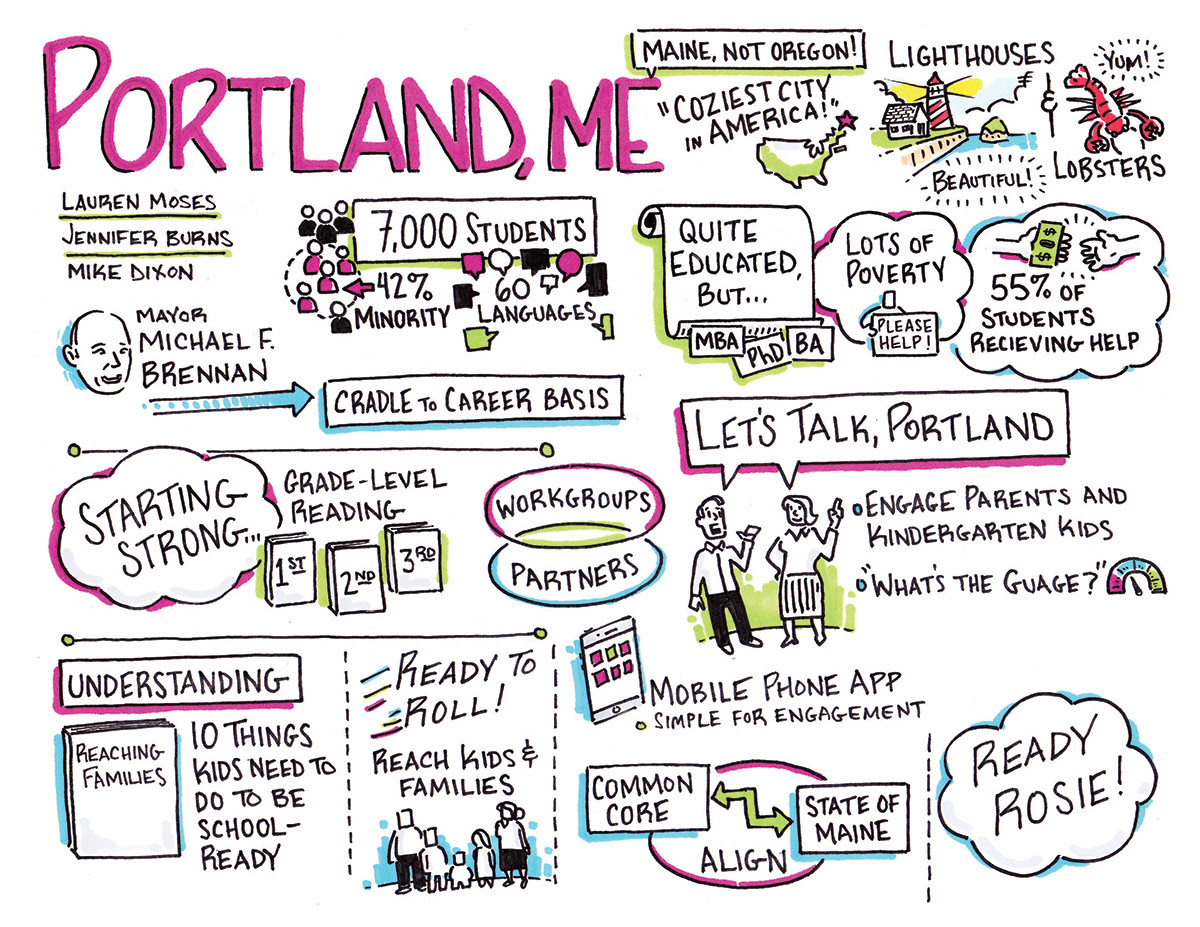 PORTLAND, ME
MAINE, NOT OREGON!
"COZIEST CITY
IN AMERICA!"
LIGHTHOUSES
&
LOBSTERS
YUM!
BEAUTIFUL!
LAUREN MOSES
JENNIFER BURNS
MIKE DIXON
MAYOR
MICHAEL F.
BRENNAN
7,000 STUDENTS
42%
MINORITY
60
LANGUAGES
QUITE
EDUCATED,
BUT...
MBA
PhD
BA
LOTS OF
POVERTY
PLEASE
HELP!
$
$
55% OF
STUDENTS
RECIEVING HELP
CRADLE TO CAREER BASIS
LET'S TALK, PORTLAND
ENGAGE PARENTS AND
KINDERGARTEN KIDS
"WHAT'S THE GUAGE?"
STARTING
STRONG...
GRADE-LEVEL
READING
1ST
2ND
3RD
WORKGROUPS
PARTNERS
UNDERSTANDING
REACHING
FAMILIES
10 THINGS
KIDS NEED TO
DO TO BE
SCHOOL-
READY
READY TO
ROLL!
REACH KIDS &
FAMILIES
MOBILE PHONE APP
SIMPLE FOR ENGAGEMENT
COMMON
CORE
STATE OF
MAINE
ALIGN
READY
ROSIE!